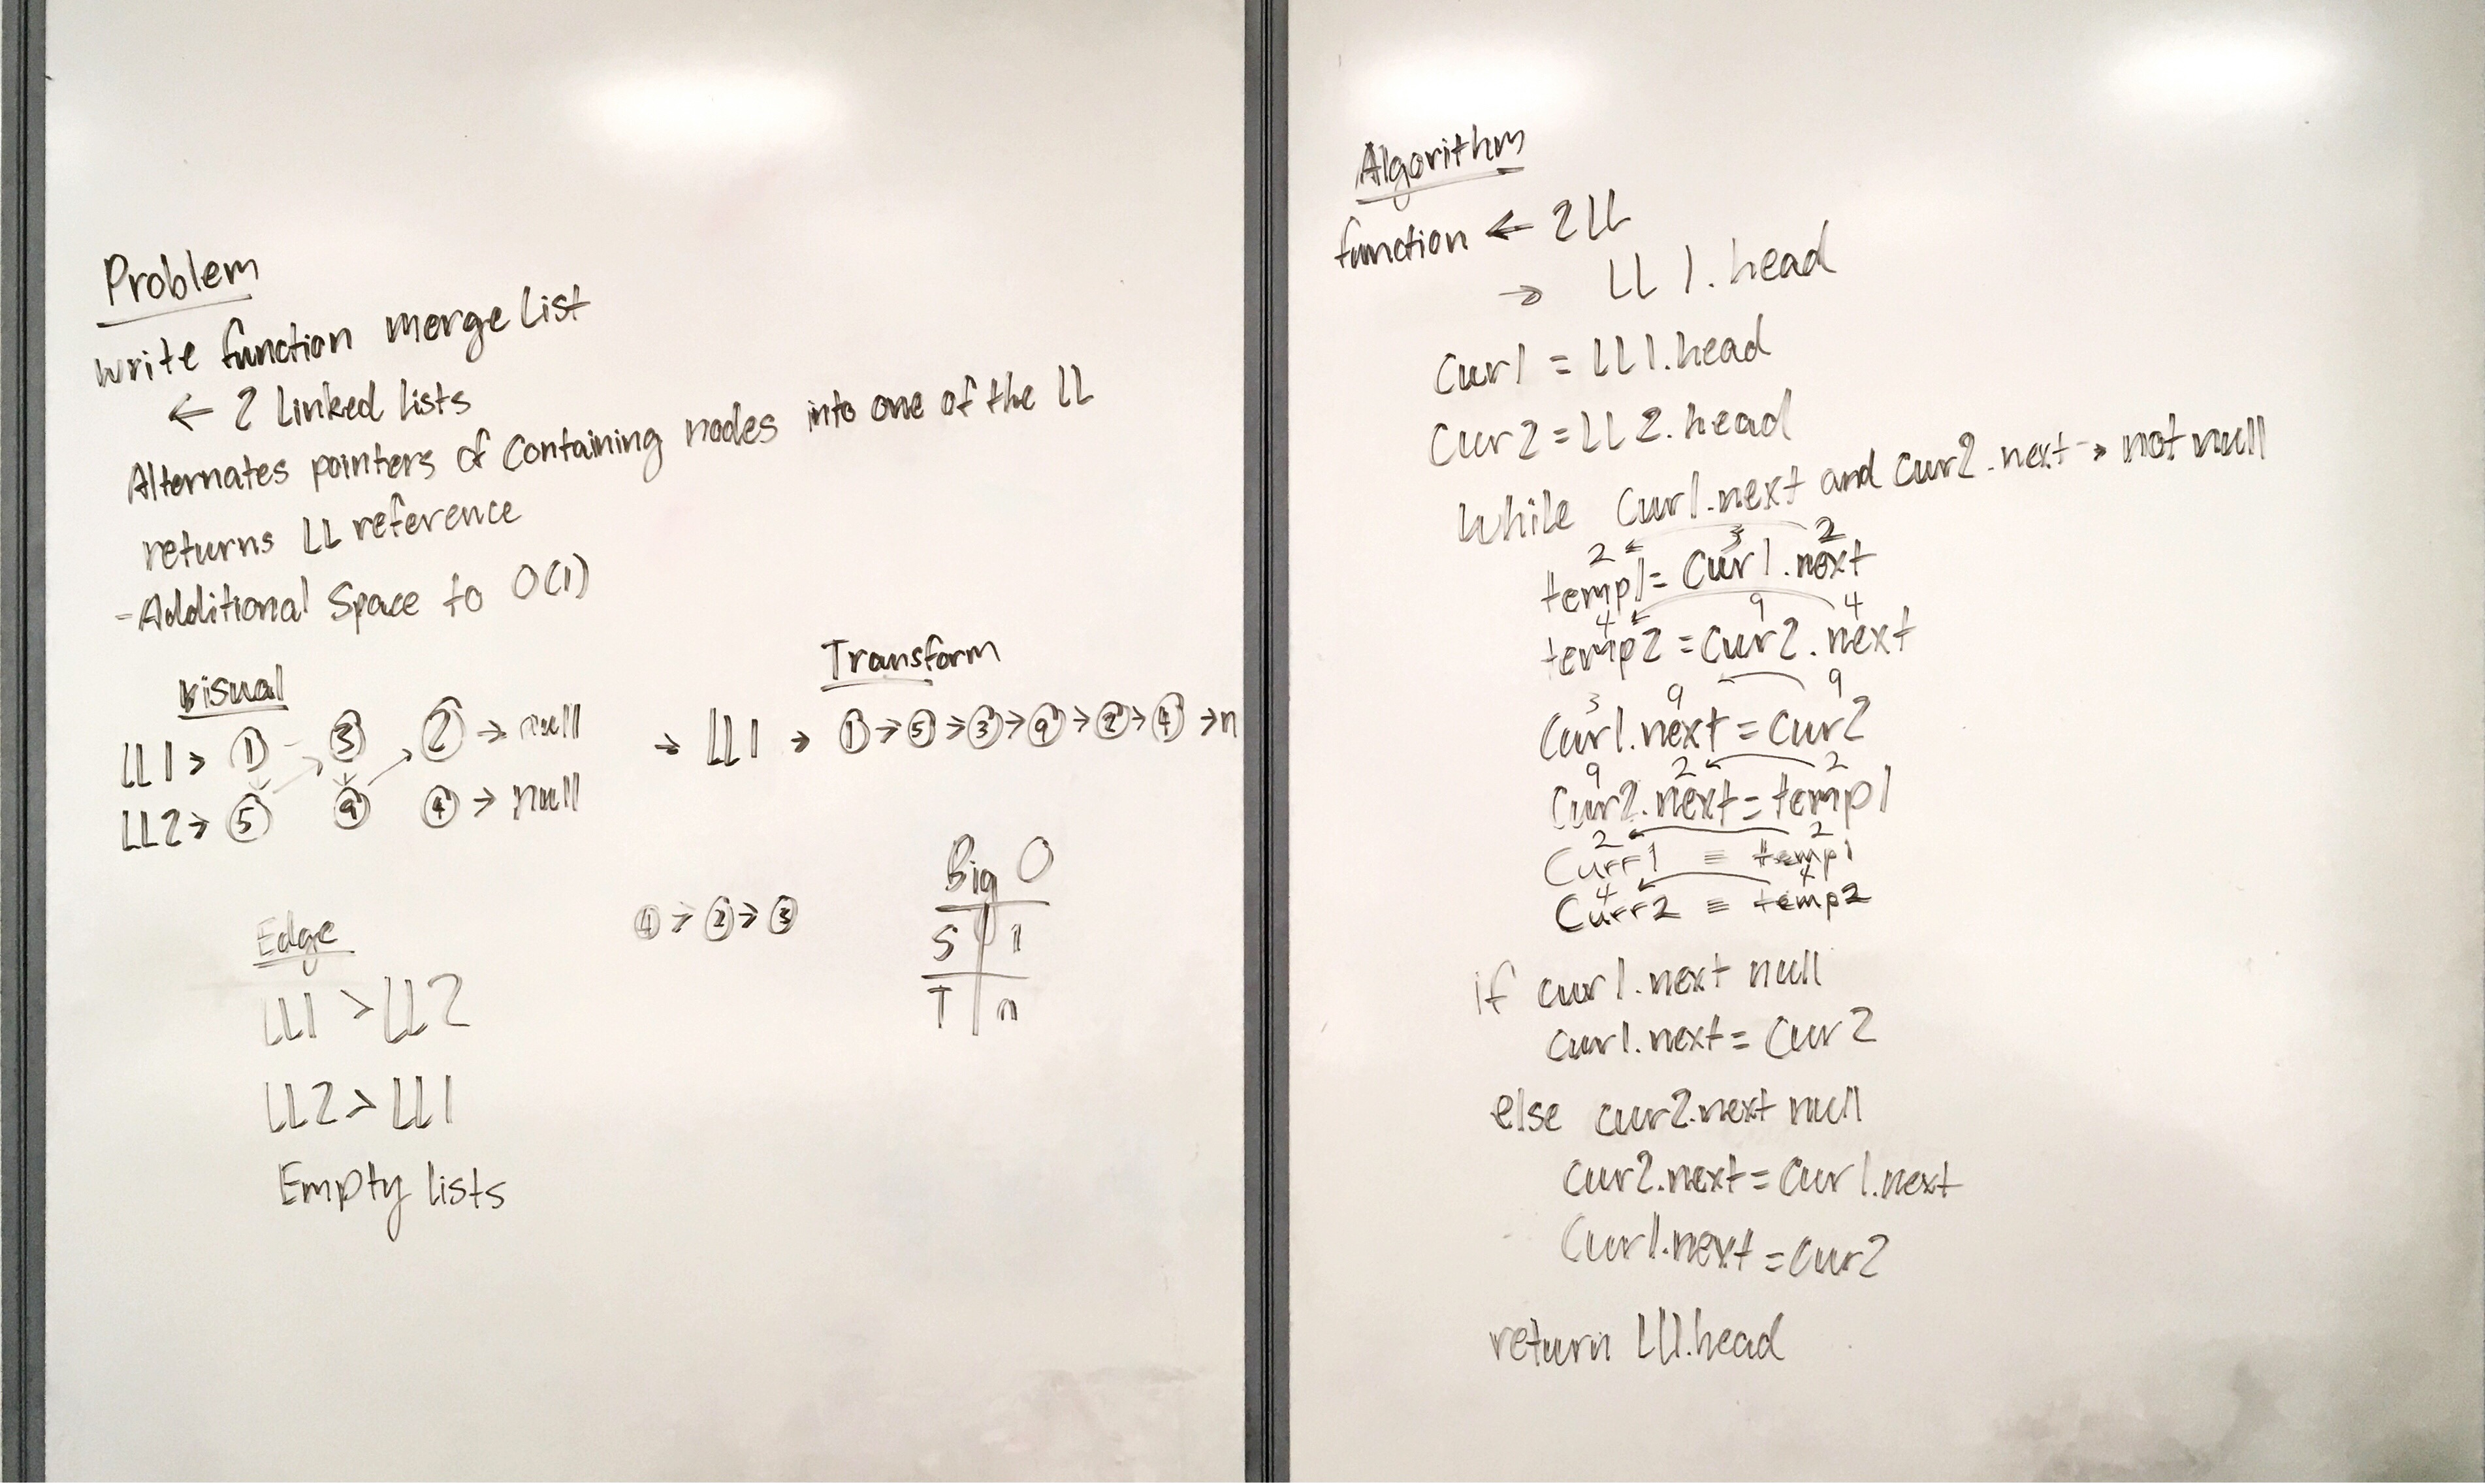 Problem
write function merge List
← 2 Linked lists
Alternates pointers of containing nodes into one of the LL
returns LL reference
- Additional Space to O(1)
visual
LL1 > 1 3 2 → null
LL2 → 5 9 4 → null
Transform
→ LL1 → 1 → 5 → 3 → 9 → 2 → 4 → n
Edge
LL1 > LL2
LL2 > LL1
Empty lists
→ 2 → 3
Big O
S 1
T n
Algorithm
function ← 2 LL
→ LL1.head
Cur1 = LL1.head
Cur2 = LL2.head
While Cur1.next and cur2.next → not null
2 3 2
temp1 = Cur1.next
4 9 4
temp2 = Cur2.next
3 9 9
Cur1.next = Cur2
9 2 2
Cur2.next = temp1
2 2
Curr1 = temp1
4 4
Curr2 = temp2
if cur1.next null
cur1.next = Cur2
else cur2.next null
cur2.next = Cur1.next
Cur1.next = Cur2
return LL1.head